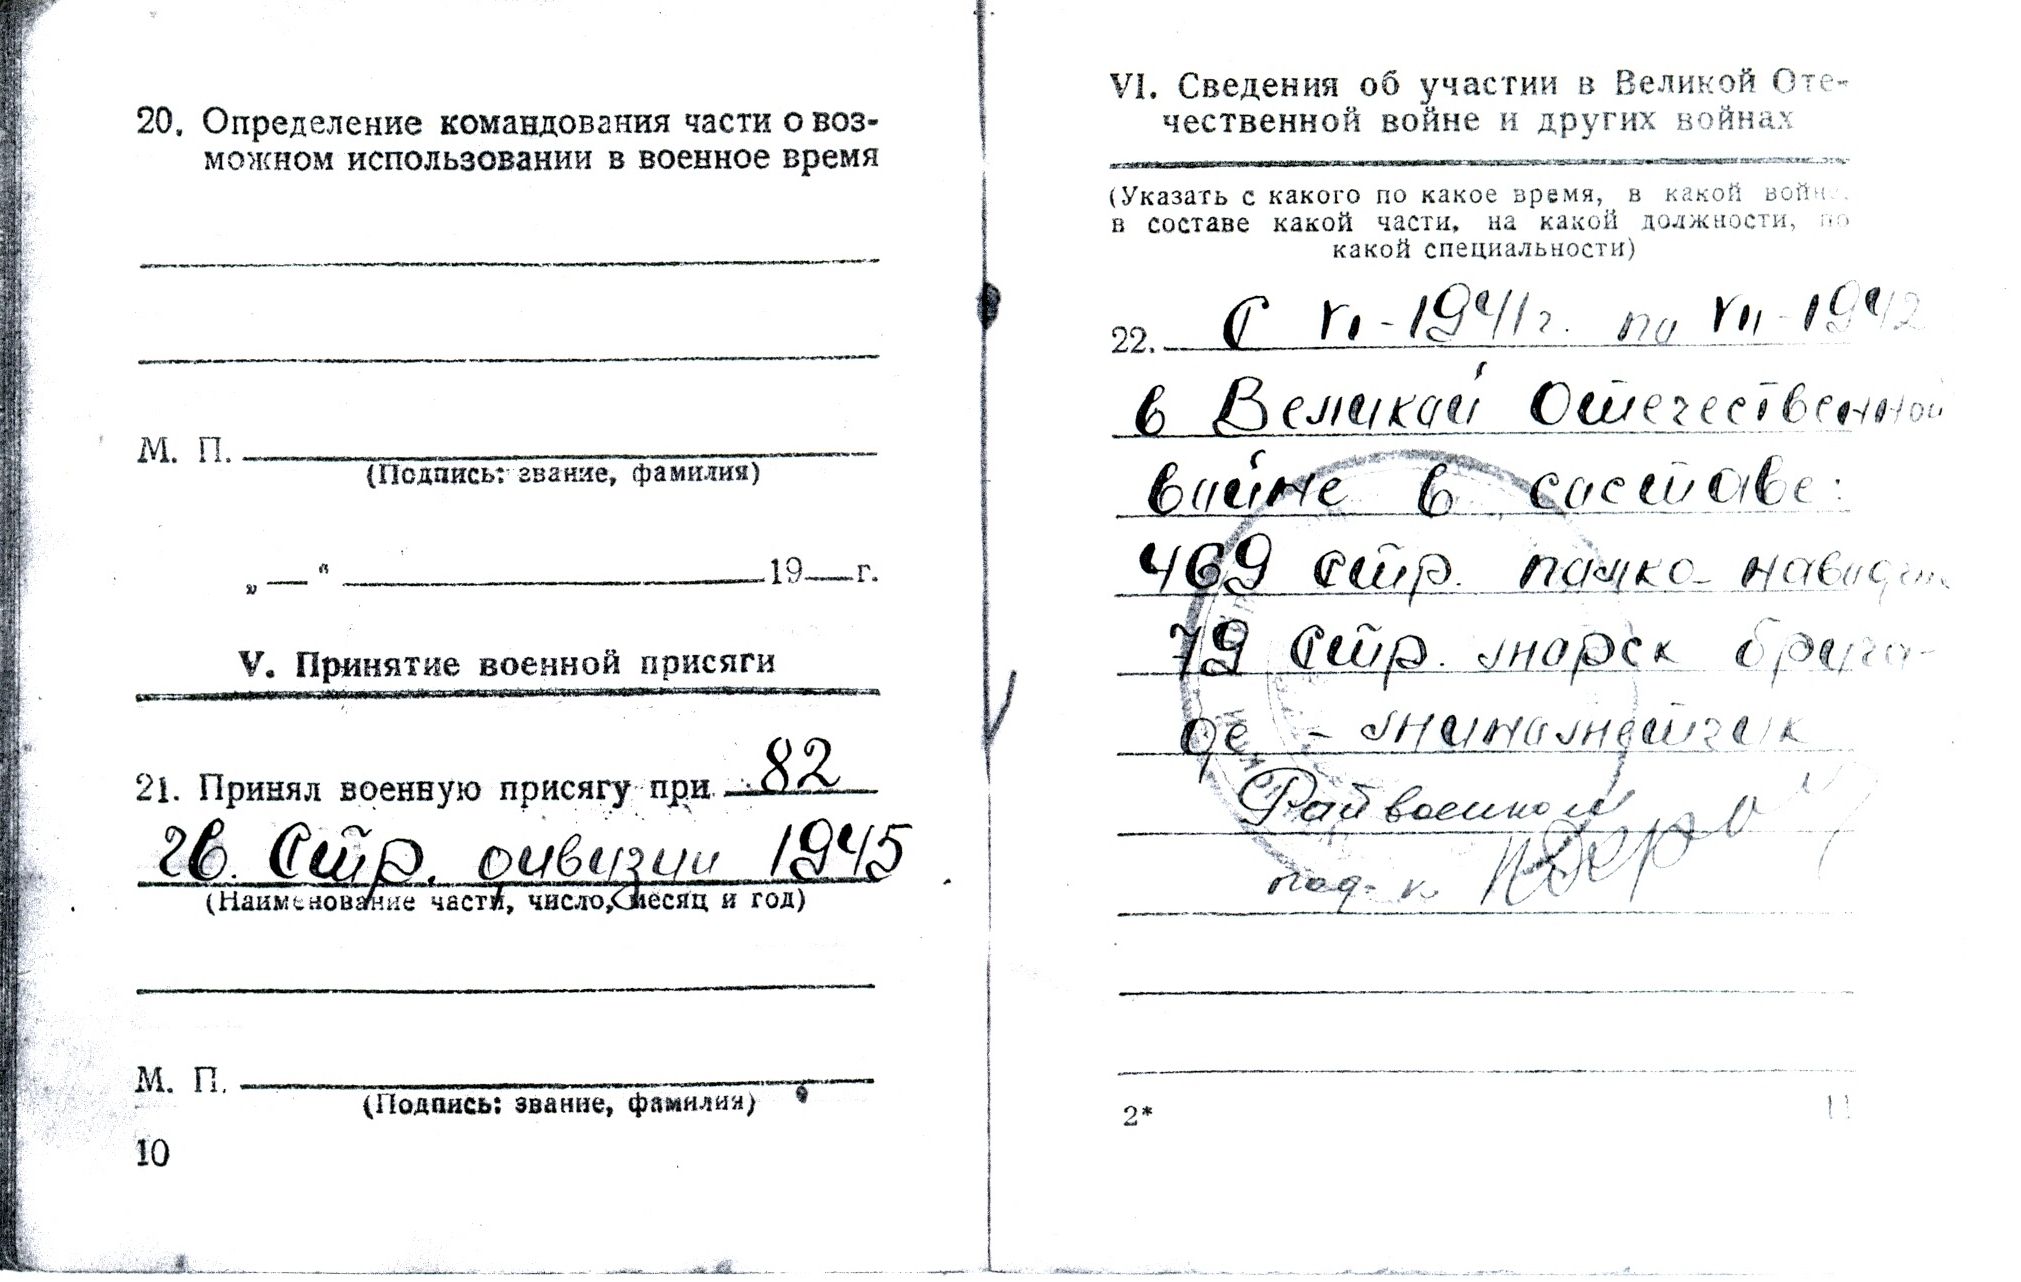 20. Определение командования части о воз-
можном использовании в военное время
М. П.
(Подпись: звание, фамилия)
„ — “ 19 г.
V. Принятие военной присяги
21. Принял военную присягу при 82
гв. стр. дивизии 1945
(Наименование части, число, месяц и год)
М. П.
(Подпись: звание, фамилия)
10
VI. Сведения об участии в Великой Оте-
чественной войне и других войнах
(Указать с какого по какое время, в какой войне,
в составе какой части, на какой должности, по
какой специальности)
22. С VI - 1941 г. по VII - 1942
в Великой Отечественной
войне в составе:
469 стр. полка - наводч
79 стр. морск брига-
де - минометчик
Райвоенком
под-к
2*
11